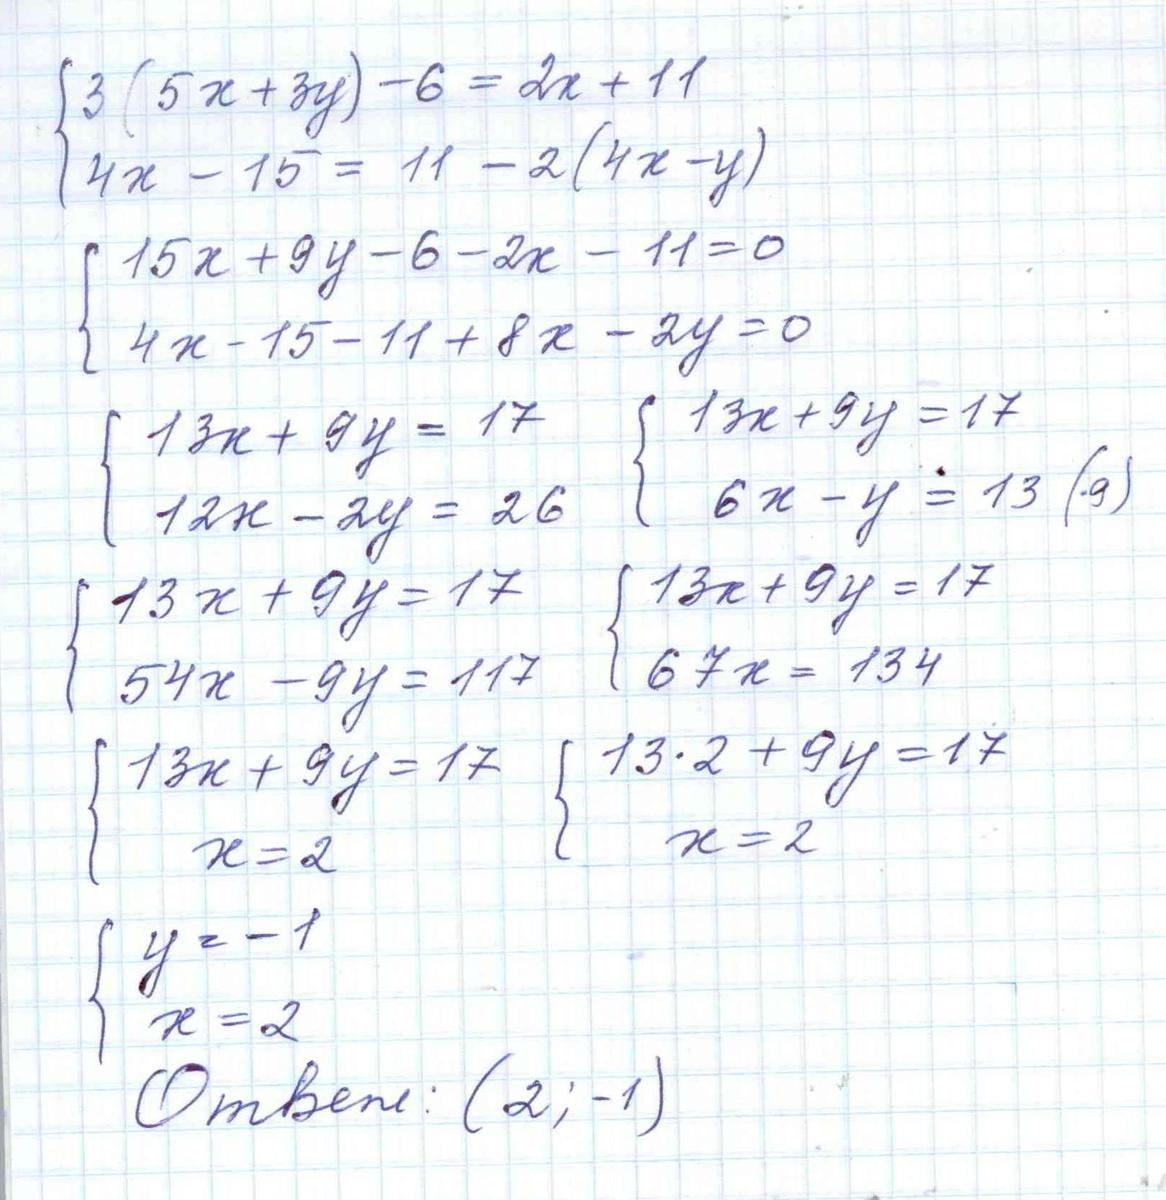 3(5x+3y)-6=2x+11
4x-15=11-2(4x-y)
15x+9y-6-2x-11=0
4x-15-11+8x-2y=0
13x+9y=17
12x-2y=26
13x+9y=17
6x-y=13 (·9)
13x+9y=17
54x-9y=117
13x+9y=17
67x=134
13x+9y=17
x=2
13·2+9y=17
x=2
y=-1
x=2
Ответ: (2;-1)